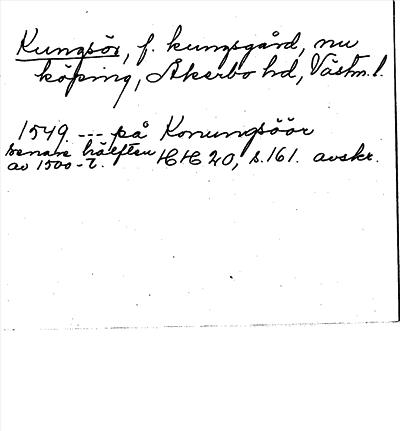 Kungsör, f. kungsgård, nu
köping, Åkerbo hd, Västm. l.
1549. --- på Konungsöör
senare hälften HH 20, s. 161. avskr.
av 1500-t.